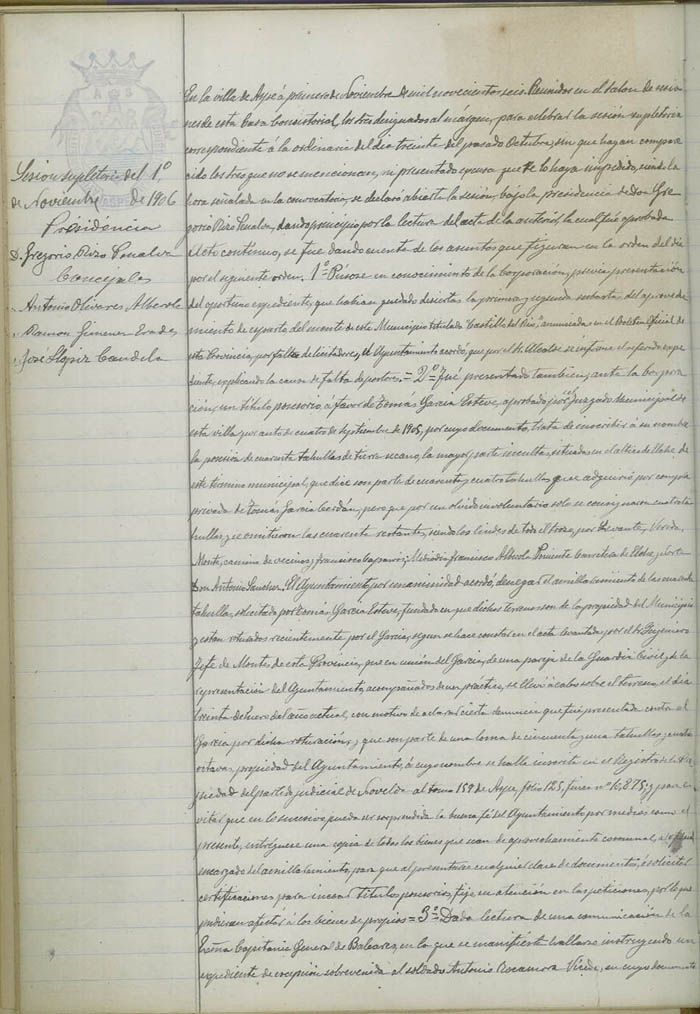 Sesion supletoria del 1º
de Noviembre de 1906
Présidéncia
D. Gregorio Rizo Penalva
Concejales
Antonio Olivares Alberola
Ramon Gimenez Erades
José Llopiz Candela
En la villa de Aspe á primero de Noviembre de mil novecientos seis. Reunidos en el salon de sesio
nes de esta Casa Consistorial, los tres designados al márgen, para celebrar la sesión supletoria
correspondiente á la ordinaria del dia treinta del pasado Octubre, sin que hayan compare
cido los tres que no se mencionan, ni presentado escusa que se lo haya impedido, siendo la
hora señalada en la convocatoria, se declaró abierta la sesión, bajo la presidencia de don Gre
gorio Rizo Penalva, dando principio por la lectura del acta de la anterior, la cual fué aprobada
Acto contínuo, se fue dando cuenta de los asuntos que figuran en la orden del dia
por el siguiente orden. 1º Púsose en conocimiento de la Corporación, previa presentación
del oportuno expediente, que habian quedado desiertas la primera y segunda subasta, del aprovecha
miento de esparto del monte de este Municipio titulado "Castillo del Rio", anunciadas en el Boletin Oficial de
esta Provincia, por falta de licitadores, el Ayuntamiento acordó, que por el Sr. Alcalde se informe el referido expe
diente, explicando la causa de falta de postores. = 2º = Fué presentado tambien, ante la Corpora
ción, un título posesorio, á favor de Tomás Garcia Esteve, aprobado por el Juzgado Municipal de
esta villa por auto de cuatro de Septiembre de 1905, por cuyo documento, trata de inscribir á su nombre
la posesion de cuarenta tahullas de tierra secano, la mayor parte inculta, situadas en el
este termino municipal, que dice son parte de cuarenta y cuatro tahullas que adquirió por compra
privada de Tomás Garcia Cerdán, pero que por un olvido involuntario solo se consignaron cuatro ta
hullas, y se omitieron las cuarenta restantes, siendo los lindes de todo el trozo, por Levante, Vereda,
Monte, camino de vecinos, y Francisco; Mediodia Francisco Alberola, Poniente Carretera de Elche, y Norte
Don Antonio Sanchez. El Ayuntamiento por unanimidad acordó, denegar el amillaramiento de las cuarenta
tahullas, solicitada por Tomás Garcia Esteve, fundada en que dichos terrenos son de la propiedad del Municipio
y estan roturados recientemente por el Garcia, segun se hace constar en el acta levantada por el Sr. Ingeniero
Jefe de Montes de esta Provincia, que en union del Garcia, de una pareja de la Guardia Civil y de la
representación del Ayuntamiento, acompañados de un práctico, se llevó á cabo sobre el terreno, el dia
treinta de Enero del año actual, con motivo de aclarar cierta denuncia que fué presentada contra el
Garcia por dicha roturación, y que son parte de una loma de cincuenta y una tahullas y cuatro
octavas, propiedad del Ayuntamiento, á cuyo nombre se halla inscrita en el Registro de la Pro
piedad del partido judicial de Novelda al tomo 159 de Aspe, folio 125, finca nº 10,875; y para e
vitar que en lo sucesivo pueda ser sorprendida la buena fé del Ayuntamiento por medios como el
presente, entréguese una copia de todos los bienes que sean de aprovechamiento comunal, al
encargado del amillaramiento, para que al presentarse cualquier clase de documentos, ó solicitar
certificaciones para incoar títulos posesorios, fije su atención en las peticiones, por lo que
pudieran afectar á los bienes de propios = 3º = Dada lectura de una comunicación de la
Excma Capitania General de Baleares, en la que se manifiesta hallarse instruyendo un
expediente de excepción sobrevenida al soldado Antonio Rocamora Vicedo, en cuyo documento